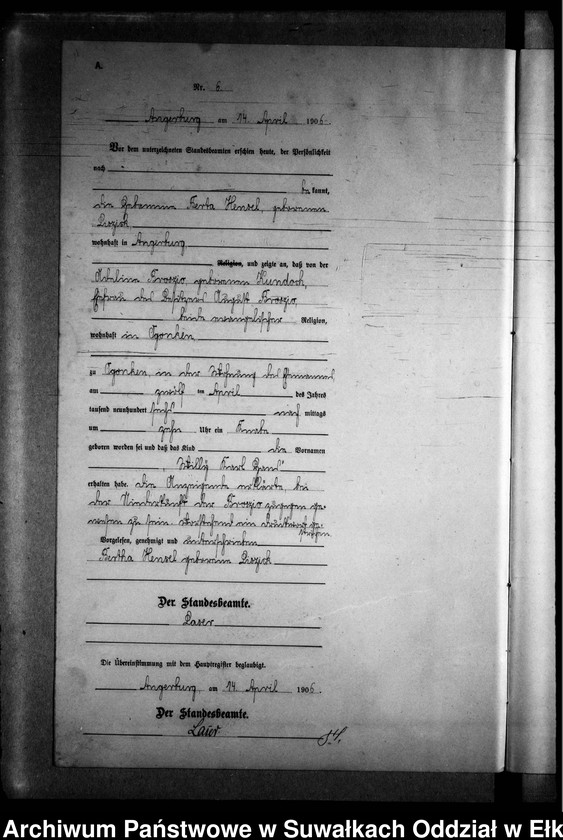 A.
Nr. 6.
Angerburg am 14. April 1906.
Vor dem unterzeichneten Standesbeamten erschien heute, der Persönlichkeit
nach
be kannt,
die Hebamme Berta Hensel, geborene
wohnhaft in Angerburg
Religion, und zeigte an, daß von der
geborenen Kundoch,
Ehefrau des Besitzers August
beide evangelischer Religion,
wohnhaft in Ogonken
zu Ogonken, in der Wohnung des Ehemannes
am zwölf ten April des Jahres
tausend neunhundert sechs nach mittags
um zehn Uhr ein Knabe
geboren worden sei und daß das Kind die Vornamen
„Willy Karl
erhalten habe. Die Anzeigende erklärte, bei
der Niederkunft der zugegen ge-
wesen zu sein. Vorstehend ein Druckwort ge-
strichen
Vorgelesen, genehmigt und unterschrieben
Bertha Hensel geborene
Der Standesbeamte.
Die Übereinstimmung mit dem Hauptregister beglaubigt.
Angerburg, am 14 April 1906.
Der Standesbeamte.
Archiwum Państwowe w Suwałkach Oddział w Ełk